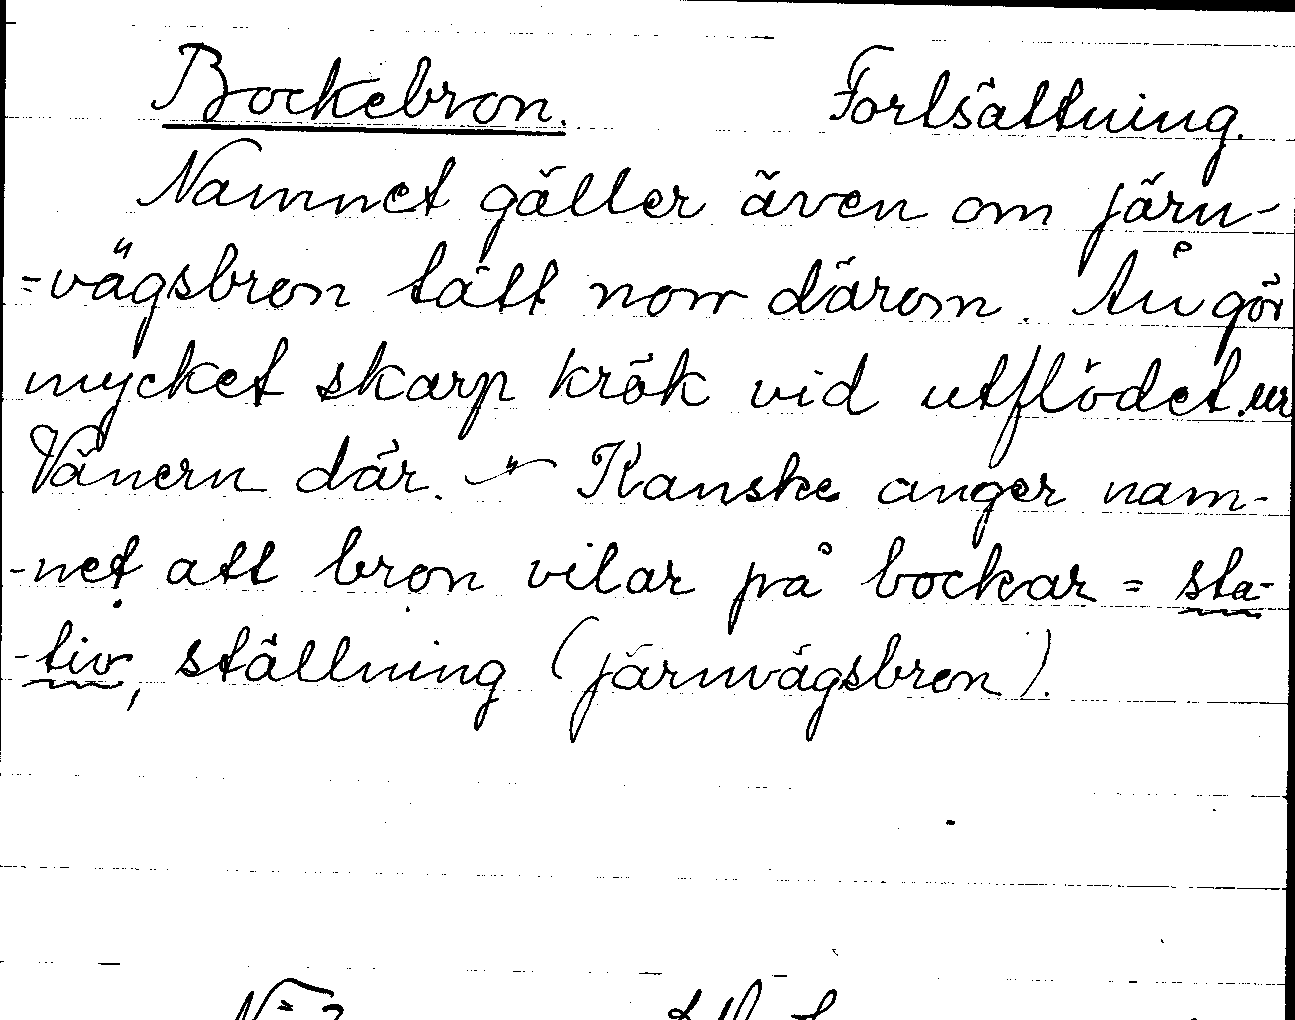 Bockebron. Fortsättning.
Namnet gäller även om järn-
=vägsbron tätt norr därom. Ån gör
mycket skarp krök vid utflödet ur
Vänern där. – Kanske anger nam-
-net att bron vilar på bockar = sta-
-tiv, ställning (järnvägsbron).